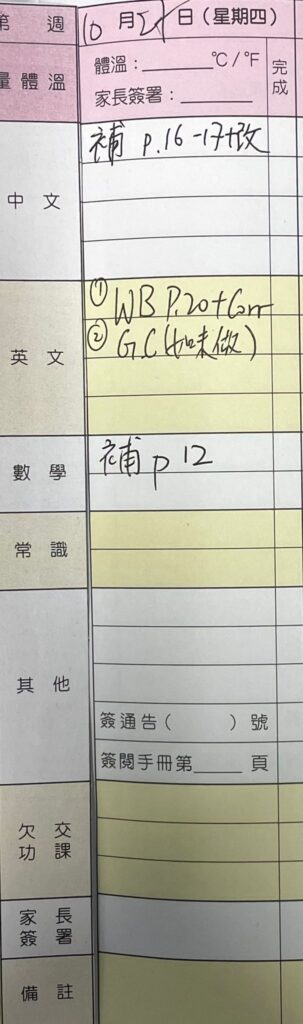 第 週
10 月 21 日 (星期四)
量體溫
體溫:______°C/°F
家長簽署:______
完成
中文
補 p.16-17+改
英文
① WB P.20+Corr
② G.C(如味做)
數學
補 p 12
常識
其他
簽通告( )號
簽閱手冊第____頁
欠交功課
家長簽署
備註